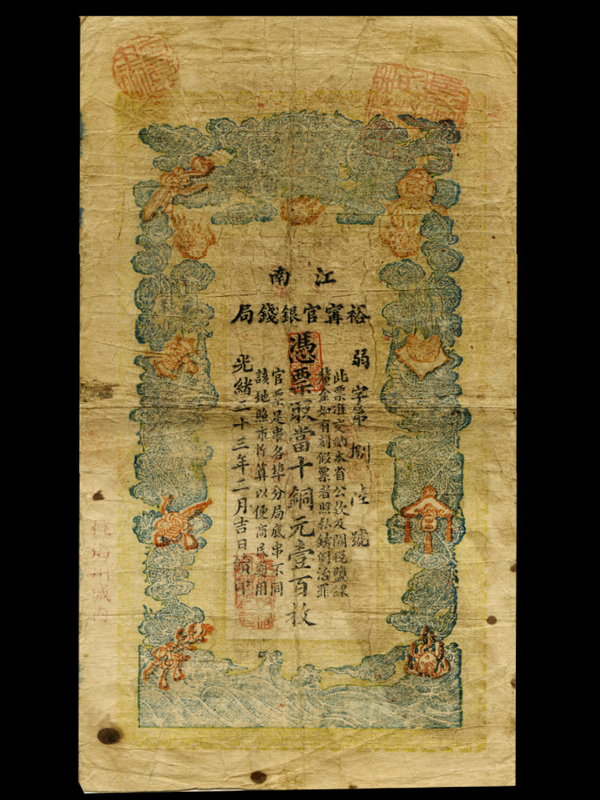 江南
裕寧官銀錢局
弱字第捌陸號
此票准交納本省公款及關稅鹽課
釐金如有刻假票者照私鑄例治罪
憑票取當十銅元壹百枚
官票足串各埠分局底串不同
該地照市折算以便商民通用
光緒三十三年二月吉日